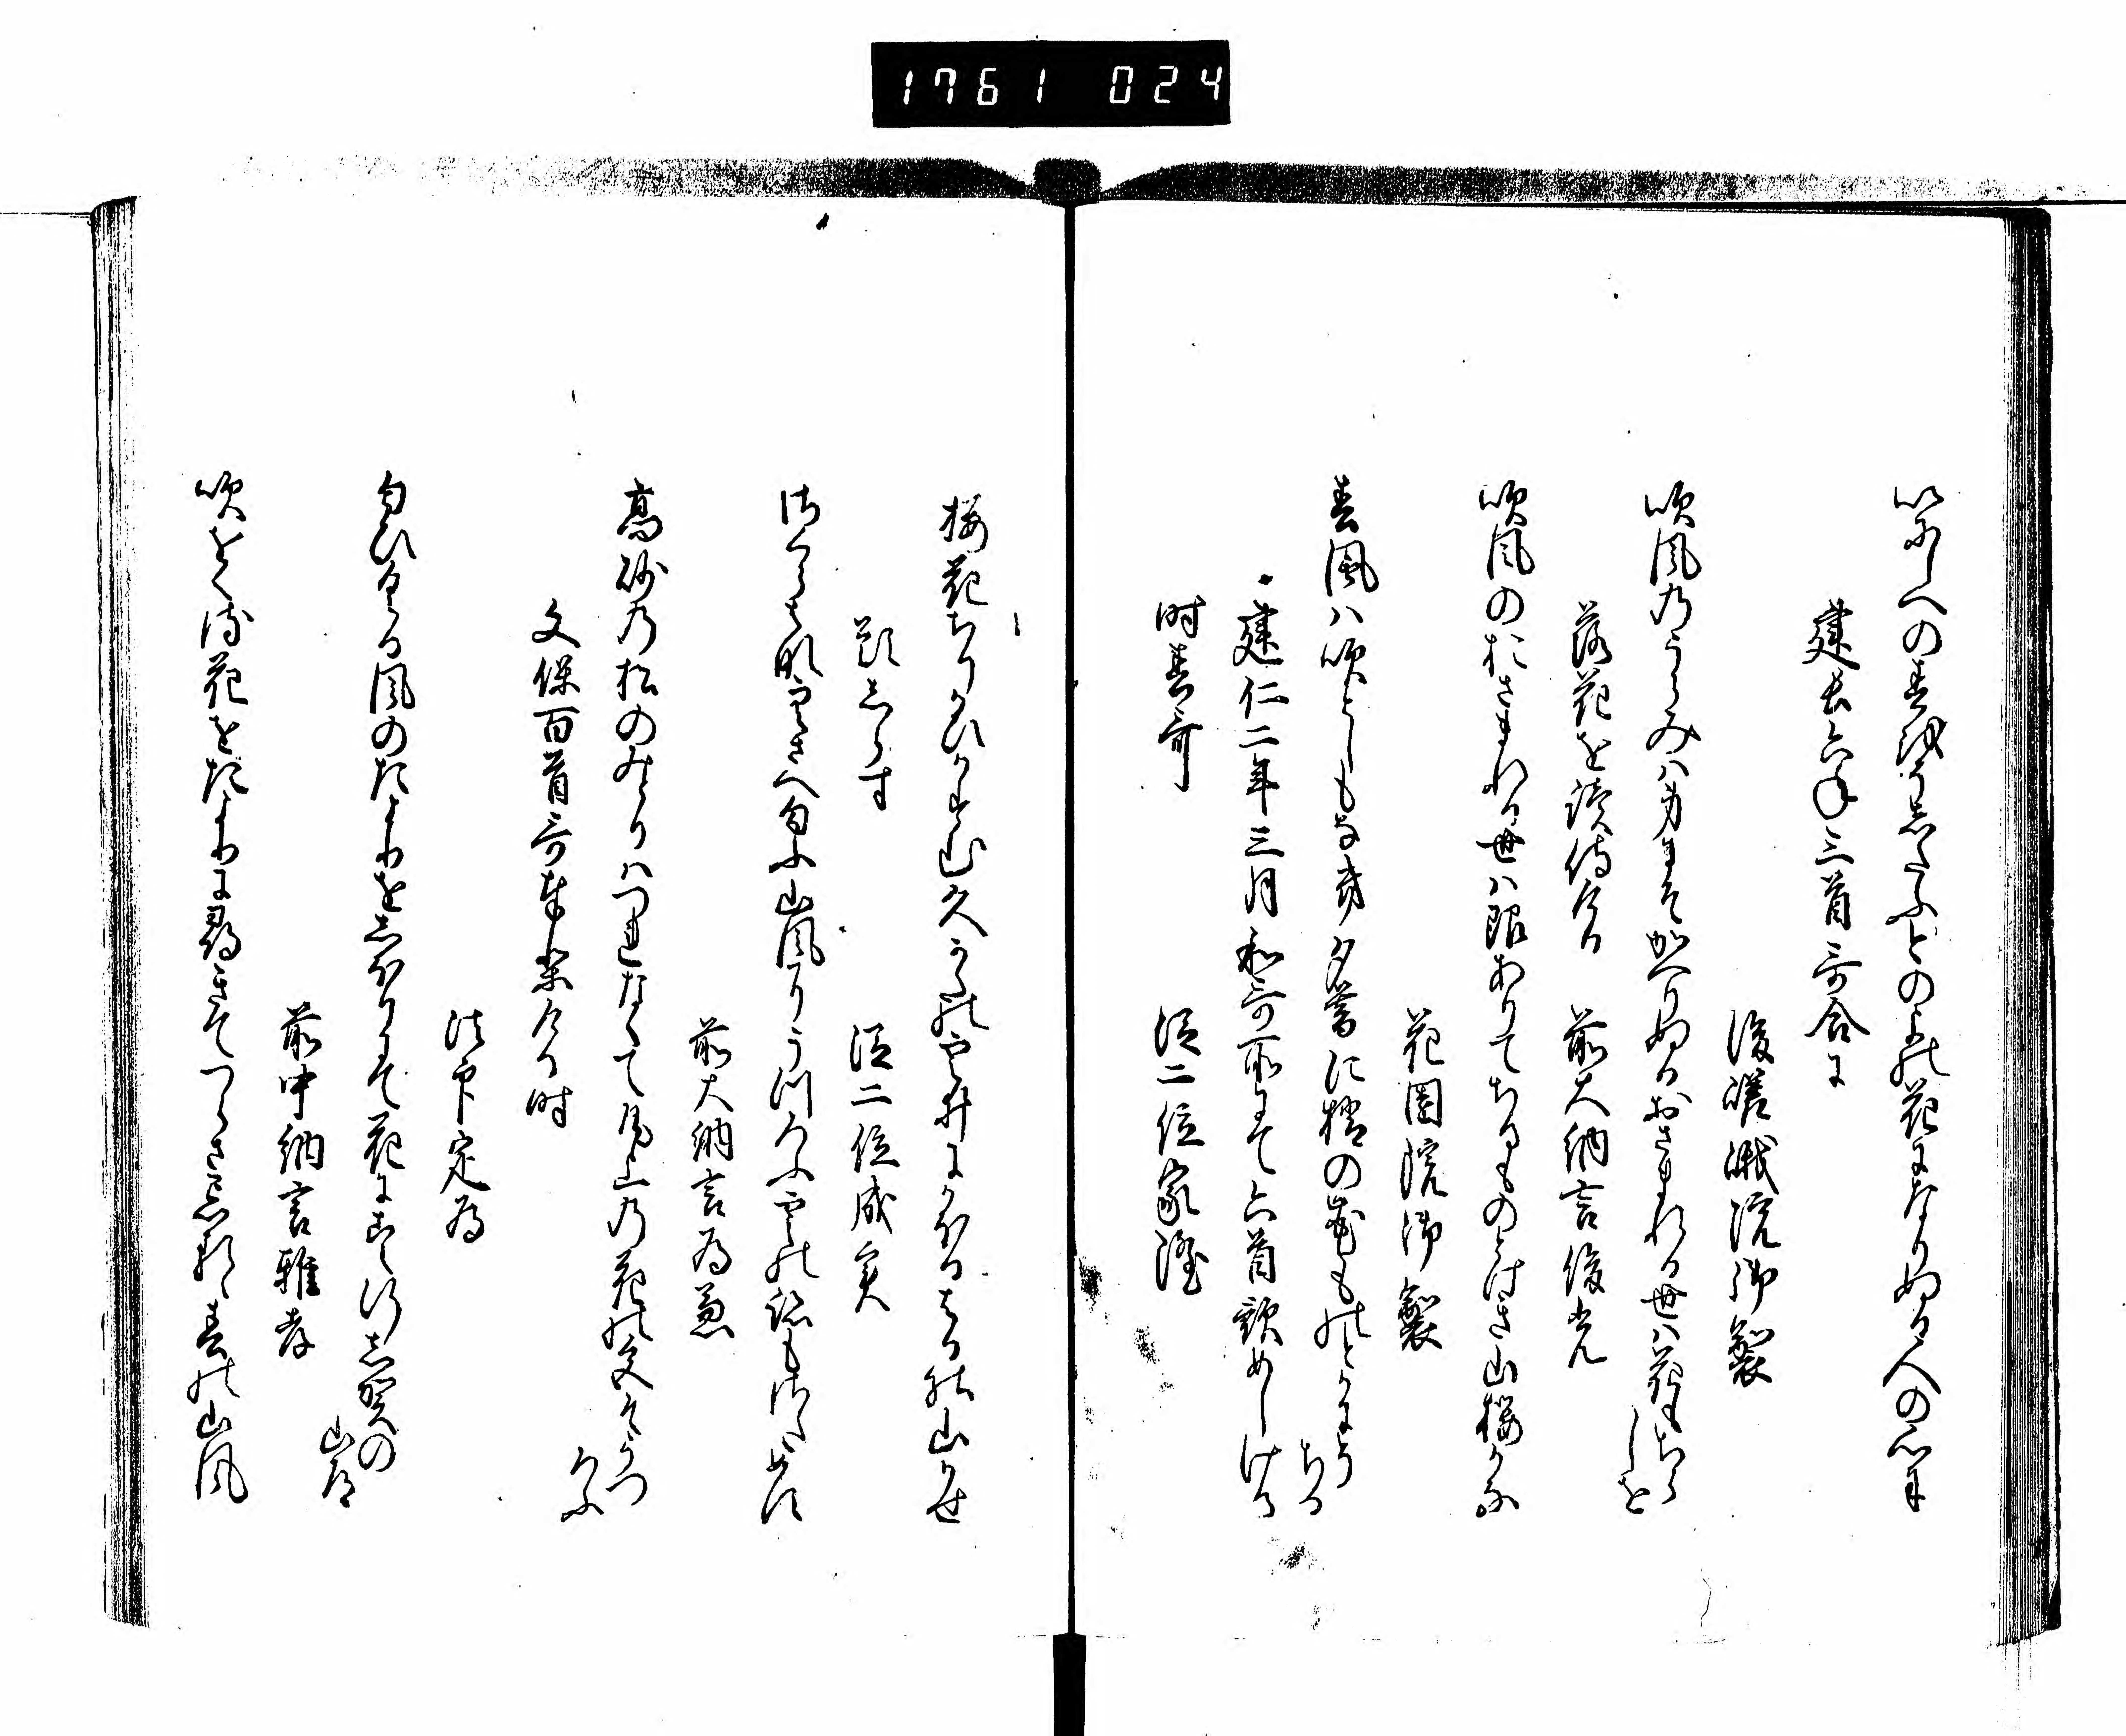 1761 024
いにしへの春をうしたふとのよの花になりぬる人の心に
建長六年三首哥合に
後嵯峨院御製
吹風のうらみハ身にそかへりぬるおさまれる世ハ花もちら
しを
落花を読侍ける
前大納言俊光
吹風のおさまれる世ハ限ありてちるものとけき山桜かな
花園院御製
春風ハ吹としもなき夕暮に梢の花ものとかにそ
ちる
建仁二年三月和哥所にて六首歌めしける
時春哥
従二位家隆
桜花ちりかひかすむ久かたの雲井にかほるはるの山かせ
題しらす
従二位成実
けふ
高砂の松のみとりハつれなくて尾上の花の雪そうつ
前大納言為兼
文保百首哥奉りける時
法印定為
匂ひくる風のたよりをしほりにて花にこえ行志賀の
山道
前中納言雅孝
吹をくる花をたよりに尋きてつらさわするゝ春の山風